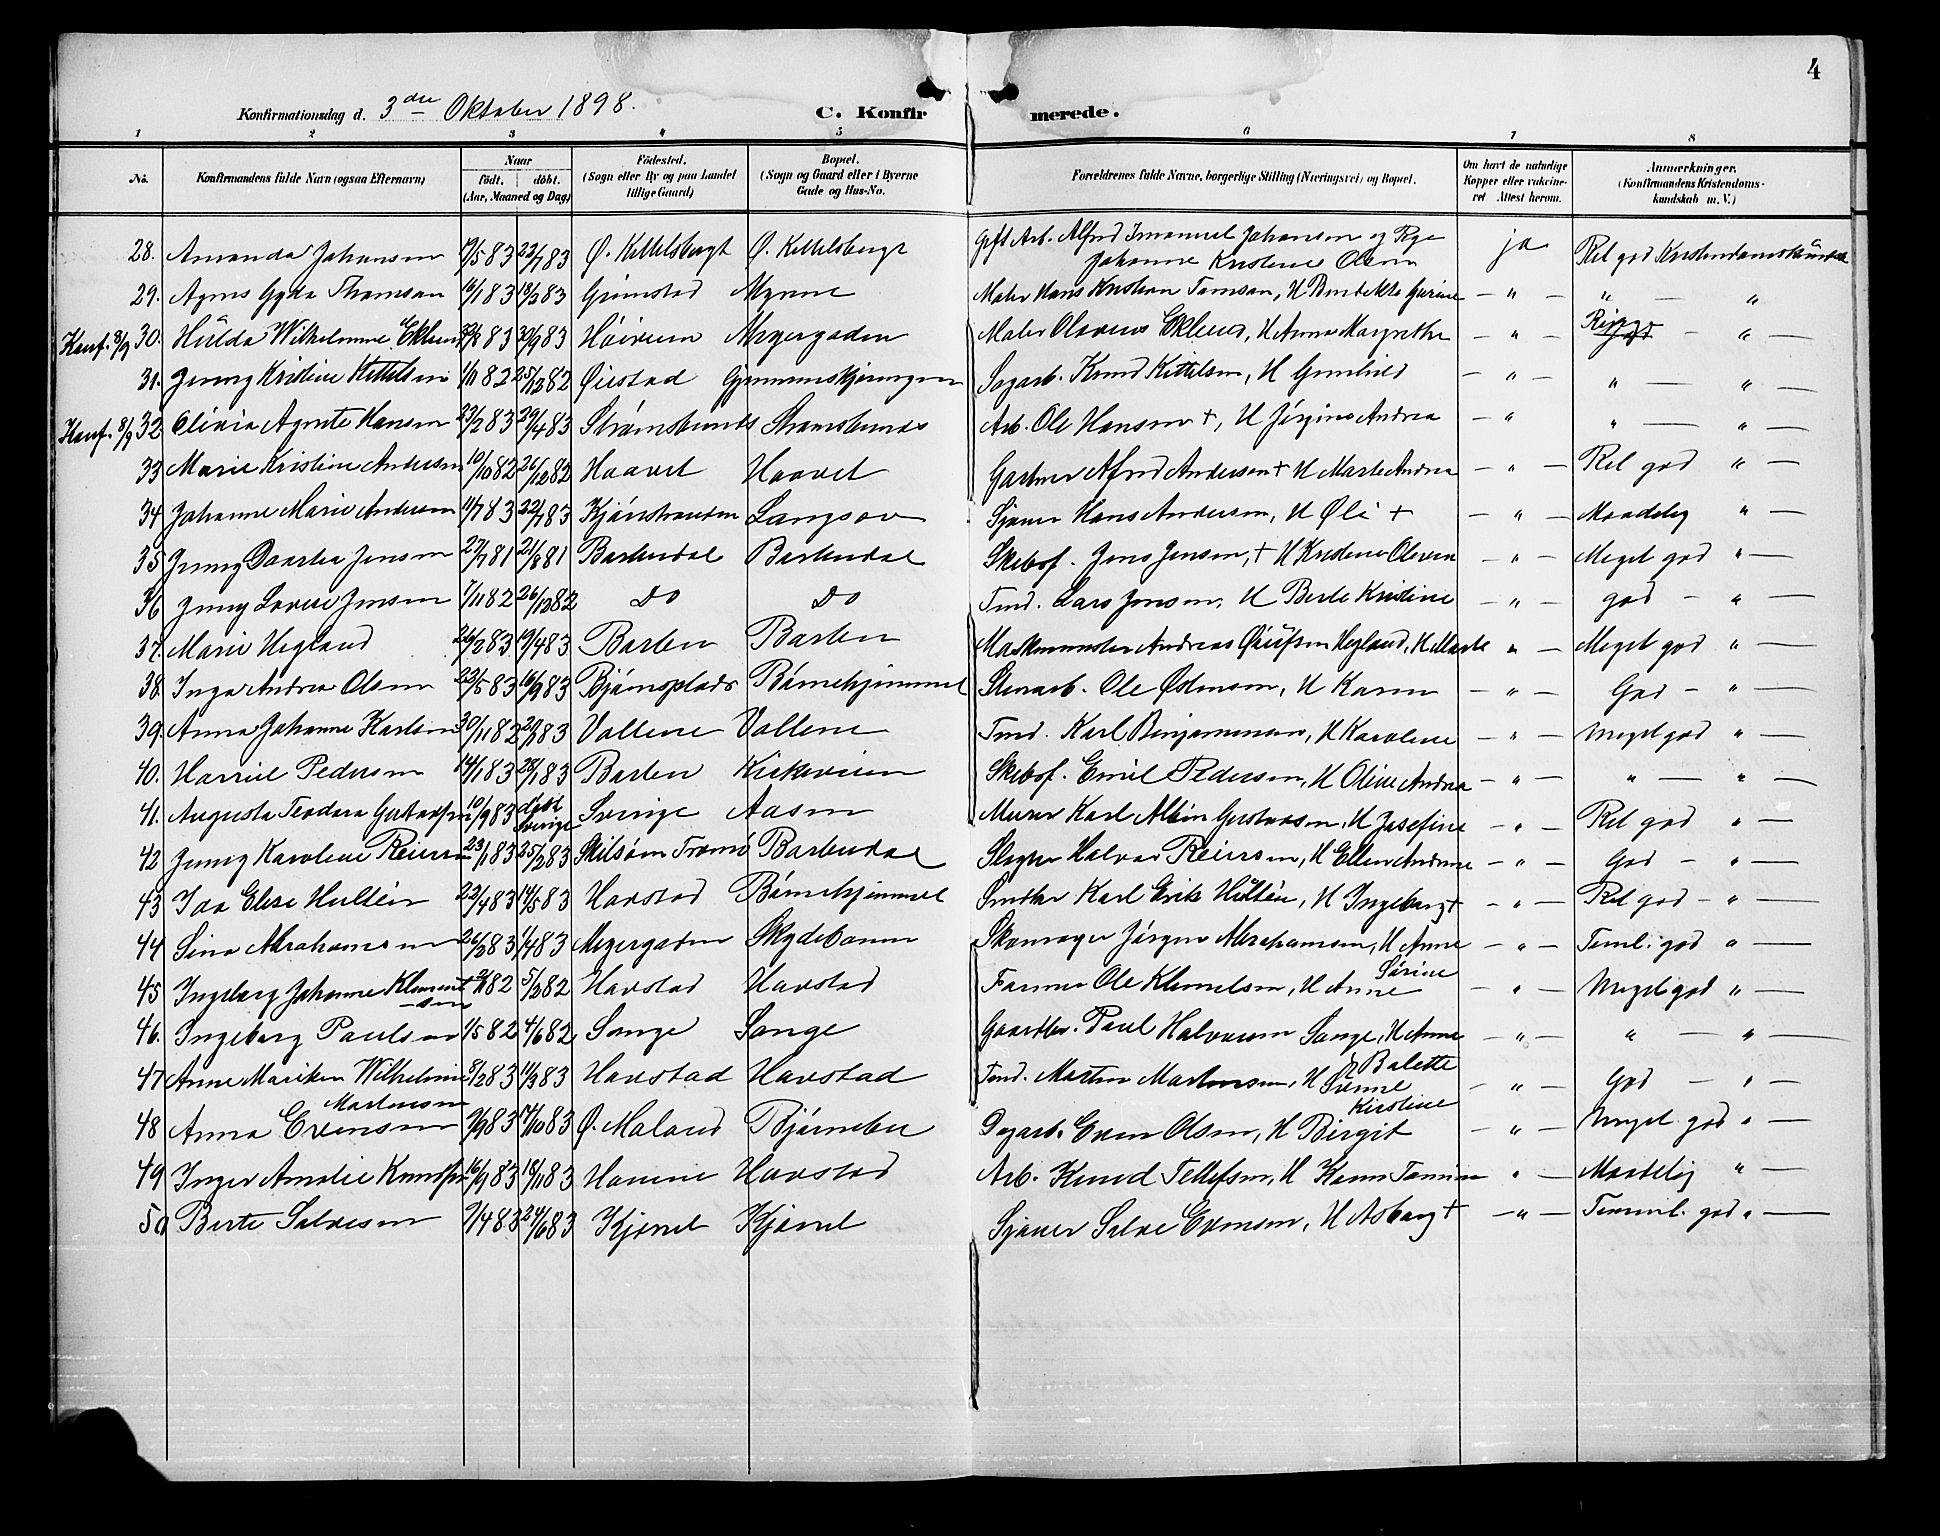 4
Konfirmationsdag d. 3die Oktober 1898. C. Konfirmerede.
1 2 3 4 5 6 7 8
No. Konfirmandens fulde Navn (ogsaa Efternavn) Naar født. døbt. (Aar, Maaned og Dag) Fødested. (Sogn eller By og paa Landet tillige Gaard) Bopæl. (Sogn og Gaard eller i Byerne Gade og Hus-No. Forældrenes fulde Navne, borgerlige Stilling (Næringsvei) og Bopæl. Om havt de naturlige Kopper eller vaksineret Attest herom. Anmerkninger. (Konfirmandens Kristendomskundskab m. V.)
28. Amanda Johansen 19/5 83 22/7 83 Ø. Kittelsbugt Ø. Kittelsbugt Gift Arb. Alfred Imanuel Johansen og Pige Johanne Kristine Olsen ja Rel god Kristendomskundskab
29. Agnes Gyda Thomsen 16/1 83 18/2 83 Grimstad Myrene Maler Hans Kristian Tomsen, H Bendikte Gurine — " — " — "
Konf. 8/9 30. Hulda Wilhelmine Eklund 83 /9 83 Høiveien Mygergaden Maler Olavus Eklund, H Anna Margrethe — " — — " —
31. Jenny Kristine Kittelsen 1/11 82 25/12 82 Øiestad Gjennemskjæringen Sagarb. Knud Kittelsen, H Gunhild — " — " — " —
Konf. 8/9 32 Olivia Agnete Hansen 23/2 83 29/4 83 Strømsbunds Strømsbunds Arb. Ole Hansen +, H Jørgine Andrea — " " — " —
33 Marie Kristine Andersen 10/10 82 26/12 82 Haavet Haavet Gartner Alfred Andersen + H Marte Andrea — " — Rel god " —
34 Johanne Marie Andersen 11/7 83 22/7 83 Kjønstranden Langsæv Sjøuer Hans Andersen, H Øli + — " — Maadelig " —
35 Jenny Daartea Jensen 27/7 81 21/8 81 Barbudal Barbudal Skibsf. Jens Jensen, + H Kristine Olevia — " — Meget god " —
36 Jenny Lovise Jensen 7/11 82 26/12 82 Do Do Tmd. Lars Jensen, H Berte Kristine — " — god — " —
37. Marie Hegland 26/2 83 19/4 83 Barbu Barbu Maskinmester Andreas Hegland, H Marte " — Meget god " —
38. Inga Andrea Olsen 23/5 83 16/9 83 Bjørnsplads Børnehjemmet Stenarb. Ole Østensen, H Karen — " — God — " —
39. Anna Johanne Karlsen 30/11 82 83 Vollene Vollene Tmd. Karl Benjaminsen, H Karoline — " — Meget god " —
40. Harriet Pedersen 14/1 83 28/1 83 Barbu Kirkeveien Skibsf. Emil Pedersen, H Oline Andrea — " — " — " —
41. Augusta Teodora Gustavsen 10/9 83 døbt Sverige Sverige Aasen Murer Karl Albin Gustavsen, H Josefine — " — Rel god " —
42 Jenny Karoline Reiersen 23/1 83 25/2 83 Skilsøen Tromø Barbudal Slagter Halvor Reiersen, H Ellen Andrine — " — God — " —
43 Ida Elise Hultén 22/4 83 14/5 83 Havstad Børnehjemmet Smither Karl Erik Hultén, H Ingeborg + — " — Rel god — " —
44 Sina Abrahamsen 26/2 83 1/4 83 Mygergaden Skydebanen Skomager Jørgen Abrahamsen, H Anne Sørine — " — Teml. god " —
45 Ingeborg Johanne Klementsen 82 5/2 82 Havstad Havstad Farmer Ole Klemetsen, H Anne — " — Meget god " —
46. Ingeborg Paulsen 1/5 82 4/6 82 Songe Songe Gaardbr. Paul Halvorsen Songe, H Anne Balette — " — " — " —
47. Anne Mariken Wilhelmine Martinsen 8/2 83 11/3 83 Havstad Havstad Tmd. Martin Martinsen, H Kirstine — " — God — " —
48 Anna Evensen 7/9 83 14/10 83 Ø. Moland Bjørnebu Dagarb. Even Olsen, H Birgit — " — Meget god " —
49 Inger Amalie Knudsen 16/9 83 18/11 83 Havstad Arb. Knud Tellefsen, H Karen " — Maadelig " —
50 Berte Salvesen 9/4 83 24/6 83 Kjenel Kjenel Sjøuer Salve Evensen, H Asborg + — " — Temml. god " —